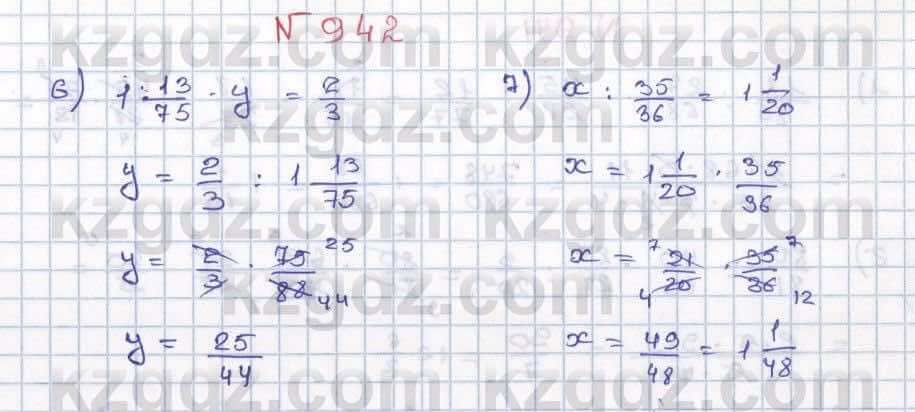 № 942
6) 1 13/75 · y = 2/3
y = 2/3 : 1 13/75
y = 2/3 · 75/88 25 44
y = 25/44
7) x : 35/36 = 1 1/20
x = 1 1/20 · 35/36
x = 7 21/20 4 · 35/36 7 12
x = 49/48 = 1 1/48
kzgdz.com kzgdz.com
kzgdz.com
kzgdz.com kzgdz.com
kzgdz.com
kzgdz.com kzgdz.com